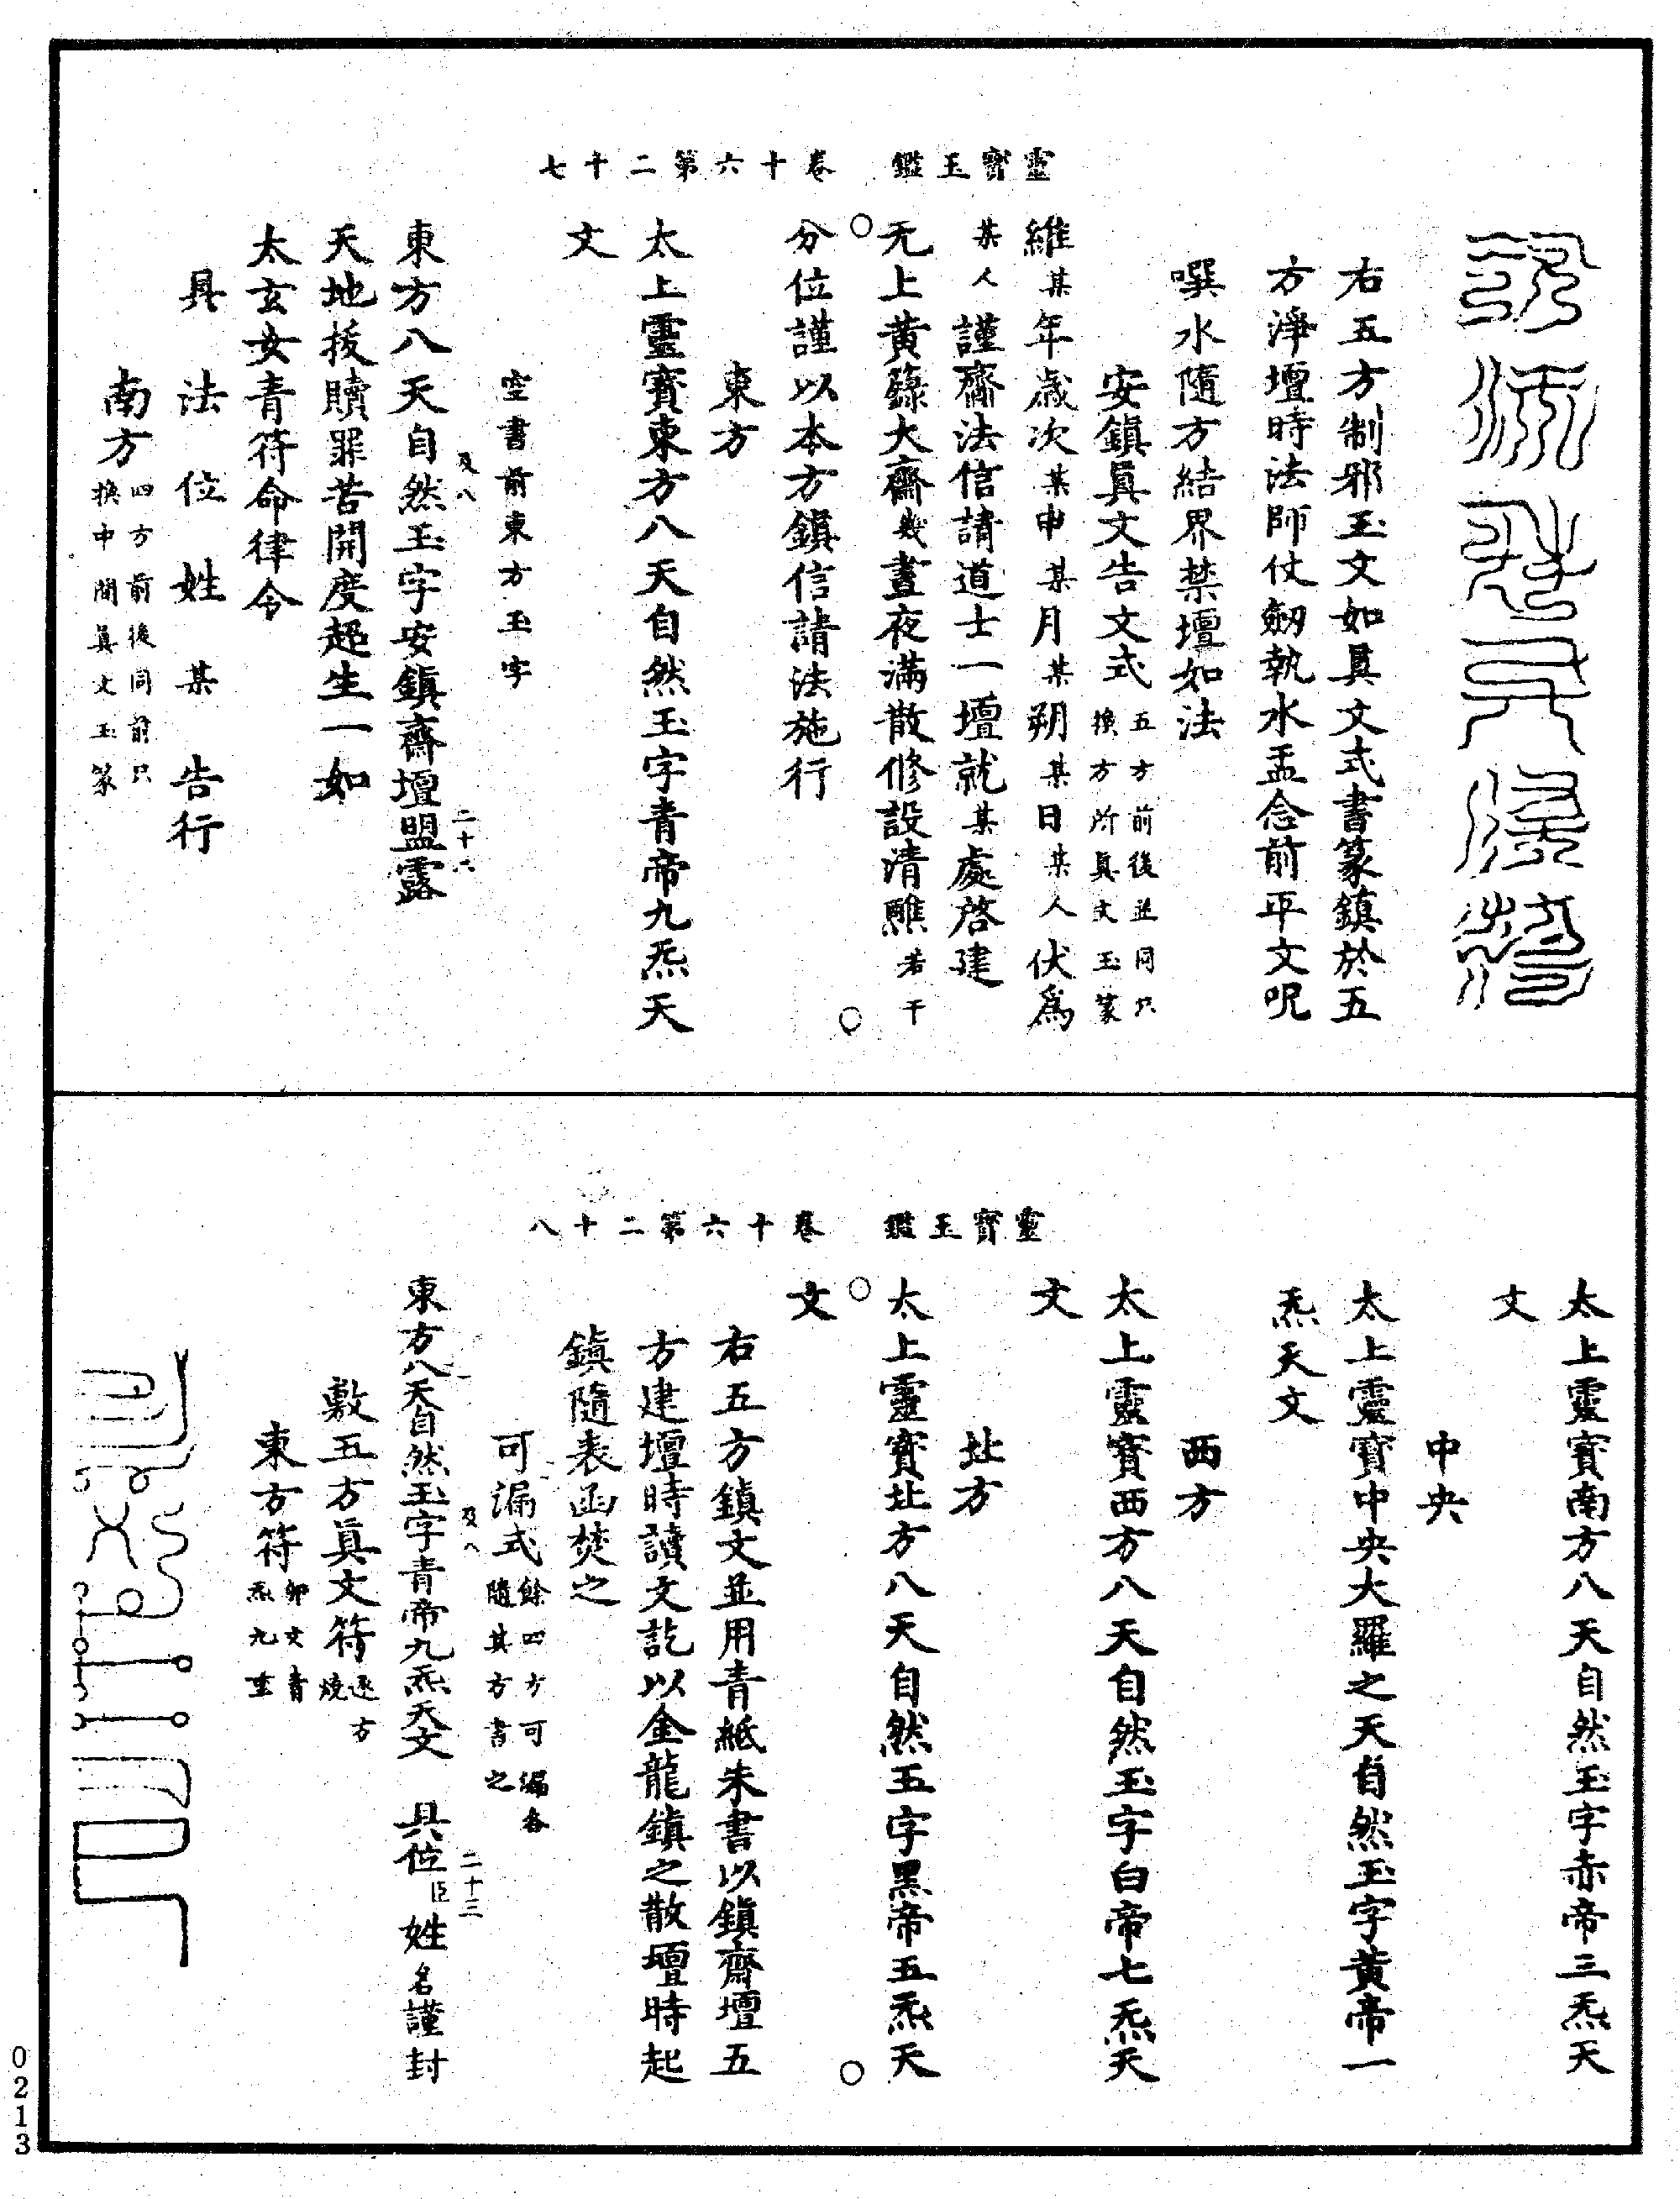 靈寶玉鑑 卷十六第二十七
右五方制邪玉文如眞文式書篆鎮於五
方淨壇時法師仗劒執水盂念前平文呪
噀水隨方結界禁壇如法
安鎮眞文告文式 五方前後並同只換方所眞文玉篆
維某年歲次某甲某月某朔某日某人伏爲
某人謹齋法信請道士一壇就某處啓建
无上黃籙大齋幾晝夜滿散修設清醮若干
分位謹以本方鎮信請法施行
東方
太上靈寶東方八天自然玉字青帝九炁天
文
空書前東方玉字
及八 二十六
東方八天自然玉字安鎮齋壇盟露
天地拔贖罪苦開度超生一如
太玄女青符命律令
具法位姓某告行
南方 四方前後同前只換中間眞文玉篆
靈寶玉鑑 卷十六第二十八
太上靈寶南方八天自然玉字赤帝三炁天
文
中央
太上靈寶中央大羅之天自然玉字黃帝一
炁天文
西方
太上靈寶西方八天自然玉字白帝七炁天
文
北方
太上靈寶北方八天自然玉字黑帝五炁天
文
右五方鎮文並用青紙朱書以鎮齋壇五
方建壇時讀文訖以金龍鎮之散壇時起
鎮隨表函焚之
可漏式 餘四方可漏各隨其方書之
及八 二十三
東方八天自然玉字青帝九炁天文 具位臣姓名謹封
敷五方眞文符 逐方燒
東方符 卯文青炁九重
0213